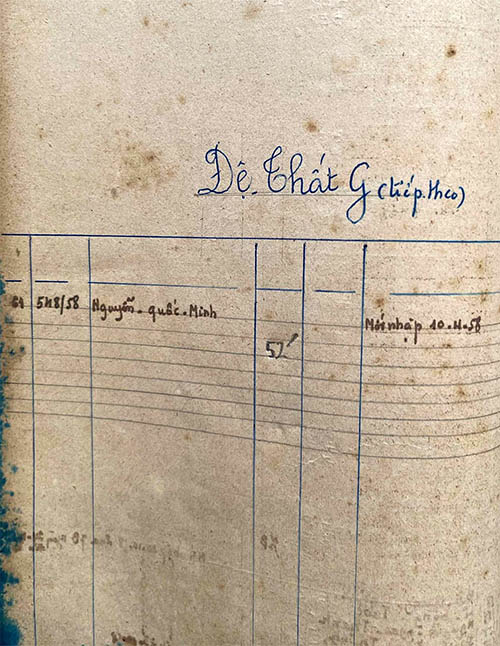 Đệ. Thất G (tiếp.theo)
61 548/58 Nguyễn. quốc. Minh
52
Mới nhập 10.11.58